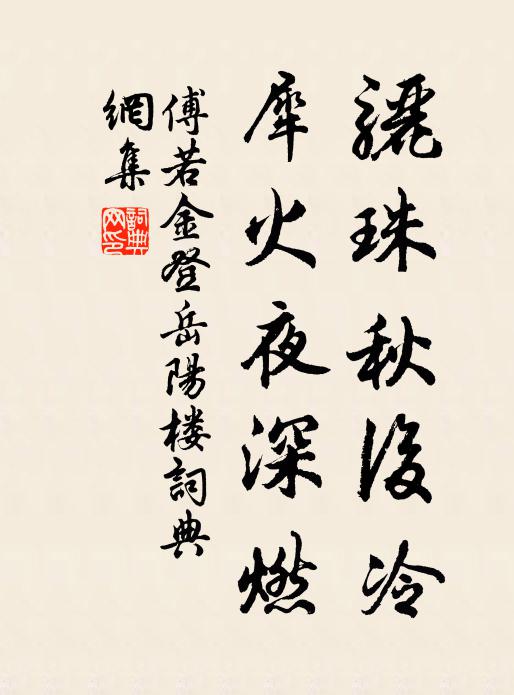 驪珠秋後冷
犀火夜深燃
傅若金登岳陽楼詞典
網集
詞典
网印